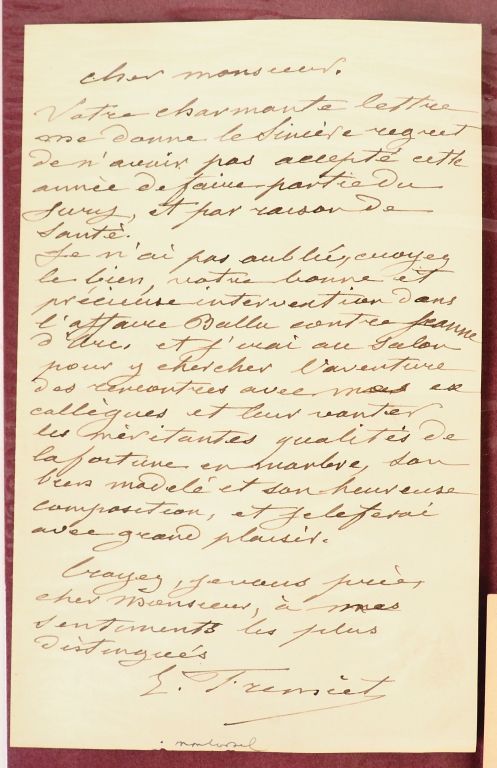 cher monsieur.
Votre charmante lettre
me donne le sincère regret
de n'avoir pas accepté cette
année de faire partie du
Jury, et par raison de
Santé.
Je n'ai pas oublié, croyez
le bien, votre bonne et
précieuse intervention dans
l'affaire Ballu contre Jeanne
d'Arc. et j'irai au Salon
pour y chercher l'aventure
des rencontres avec mes ex
collègues et leur vanter
les méritantes qualités de
la fortune en marbre, son
bien modelé et son heureuse
composition, et je le ferai
avec grand plaisir.
Croyez, je vous prie,
cher Monsieur, à mes
sentiments les plus
distingués
E. Fremiet